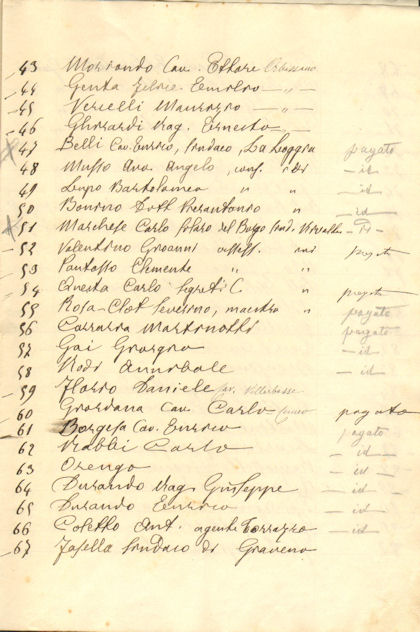 43 Morrando Cav. Ettore
44 Genta Felice Emilio — " —
45 Vercelli Maurizio — " —
46 Gherardi Rag. Ernesto —
47 Belli Cav. Enrico, Sindaco, La Loggia pagato
48 Musso Avv. Angelo, cons. id
49 Lupo Bartolomeo " " — id
50 Bonino Dott. Pierantonio " — id
51 Marchese Carlo Solaro del Borgo Sind. — id
52 Valentino Giovanni assess.
53 Pautasso Clemente " "
54 Questa Carlo Segret. C. "
55 Rosa-Clot Severino, maestro " pagato
56 Carrara Martinotti pagato
57 Gai Giorgio — id
58 Rodi Annibale — id
59 Florio Daniele
60 Giordana Cav. Carlo pagato
61 Borgesa Cav. Enrico pagato
62 Rabbi Carlo — id
63 Orengo — id —
64 Durando Rag. Giuseppe — id —
65 Durando Enrico — id —
66 Coletto Ant. agente — id
67 Fasella Sindaco di Graveno